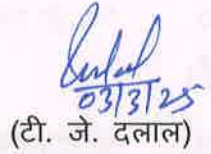 03/3/25
(टी. जे. दलाल)